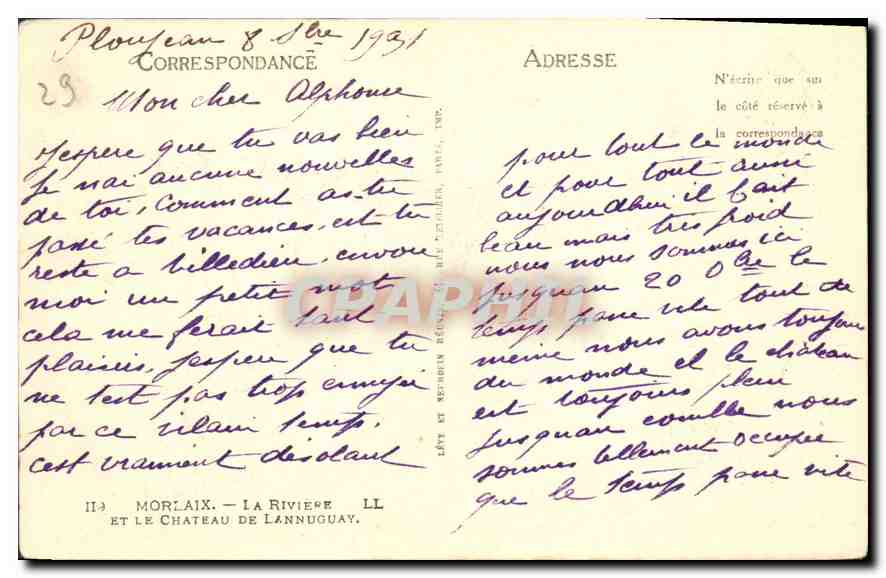 Ploujean 8 Sbre 1931
CORRESPONDANCE
29
Mon cher Alphonse
Jespere que tu vas bien
Je nai aucune nouvelles
de toi, comment as-tu
passé tes vacances, est tu
reste a Villedieu, envoie
moi un petit mot
cela me ferait tant
plaisir, Jespere que tu
ne test pas trop ennuyé
par ce vilain temps,
cest vraiment désolant
119 MORLAIX. — LA RIVIÈRE LL
ET LE CHATEAU DE LANNUGUAY.
LÉVY ET NEURDEIN RÉUNIS, RUE LETELLIER, PARIS, IMP.
ADRESSE
N'écrire que sur
le côté réservé à
la correspondance
pour tout le monde
et pour tout aussi
aujourdhui il fait
beau mais très froid
nous nous sommes ici
jusquau 20 Obre le
temps passe vite tout de
meme nous avons toujours
du monde et le château
est toujours plein
jusquau comble nous
sommes tellement occupée
que le temps passe vite
CPARHII